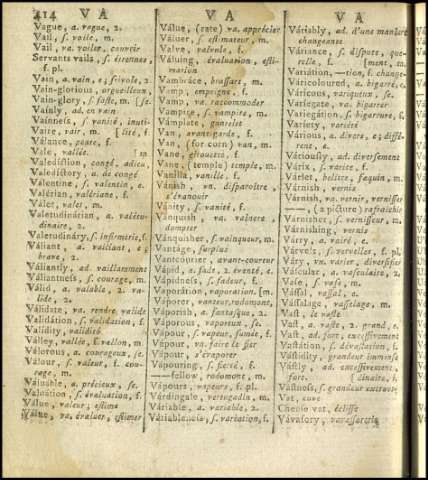 414 V A
V A
V A
Vague, a. vague, 2.
Vail, ſ. voile, m.
Vail, va. voiler, couvrir
Servants vails, ſ. étrennes,
f. pl.
Vain, a. vain, e; frivole, 2.
Vain-glorious, orgueilleux,
Vain-glory, ſ. faſte, m. [ſe.
Vainly, ad. en vain
Vainneſs, ſ. vanité, inuti-
Vaire, vair, m. [lité, f.
Válance, pente, f.
Vale, vallée.
Valedíction, congé, adieu,
Valedíctory, a. de congé
Válentine, ſ. valentin, e.
Valérian, valériane, f.
Válet, valet, m.
Valetudinárian, a. valétu-
dinaire, 2.
Valetúdináry, ſ. infirmerie, f.
Váliant, a. vaillant, e;
brave, 2.
Váliantly, ad. vaillamment
Váliantneſs, ſ. courage, m.
Válid, a. valable, 2. va-
lide, 2.
Válidate, va. rendre valide
Validátion, ſ. validation, f.
Validity, validité
Válley, vallée, f. vallon, m.
Válorous, a. courageux, ſe.
Válour, ſ. valeur, f. cou-
rage, m.
Váluable, a. précieux, ſe.
Valuátion, ſ. évaluation, f.
Válue, valeur, eſtime
Válue, va. évaluer, eſtimer
Válue, (rate) va. apprécier
Váluer, ſ. eſtimateur, m.
Valve, valvule, f.
Váluing, évaluation, eſti-
mation
Vámbrace, braſſart, m.
Vamp, empeigne, f.
Vamp, va. raccommoder
Vámpire, ſ. vampire, m.
Vámplate, gantelet
Van, avant-garde, f.
Van, (for corn) van, m.
Vane, girouette, f.
Vane, (temple) temple, m.
Vanílla, vanille, f.
Vánish, vn. diſparoître,
s'évanouir
Vánity, ſ. vanité, f.
Vánquish, va. vaincre,
dompter
Vánquisher, ſ. vainqueur, m.
Vantage, ſurplus
Vantcourier, avant-coureur
Vápid, a. fade, 2. éventé, e.
Vápidneſs, ſ. fadeur, f.
Vaporátion, vaporation, [m.
Váporer, vanteur, rodomont,
Váporish, a. fantaſque, 2.
Váporous, vaporeux, ſe.
Vápour, ſ. vapeur, fumée, f.
Vápour, va. faire le fier
Vápour, s'évaporer
Vápouring, ſ. fierté, f.
—fellow, rodomont, m.
Vápours, vapeurs, f. pl.
Várdingale, vertugadin, m.
Váriable, a. variable, 2.
Váriableneſs, ſ. variation, f.
Váriably, ad. d'une maniere
changeante
Váriance, ſ. diſpute, que-
relle, f. [ment, m.
Variátion, —tion, f. change-
Váricoloured, a. bigarré, e.
Váricous, variqueux, ſe.
Váriegate, va. bigarrer
Variegátion, ſ. bigarrure, f.
Variety, variété
Várious, a. divers, e; diffé-
rent, e.
Váriously, ad. diverſement
Várix, ſ. varice, f.
Várlet, belître, faquin, m.
Várnish, vernis
Várnish, va. vernir, verniſſer
——, (a picture) rafraichir
Várnisher, ſ. verniſſeur, m.
Várnishing, vernis
Várry, a. vairé, e.
Várvels, ſ. vervelles, f. pl.
Váry, vn. varier, diverſifier
Váſcular, a. vaſculaire, 2.
Vaſe, ſ. vaſe, m.
Váſſal, vaſſal, e.
Váſſalage, vaſſelage, m.
Vaſt, le vaſte
Vaſt, a. vaſte, 2. grand, e.
Vaſt, ad. fort, exceſſivement
Vaſtátion, ſ. dévaſtation, f.
Vaſtídity, grandeur immenſe
Váſtly, ad. exceſſivement,
fort.
Váſtneſs, ſ. grandeur extrême
Vat, cuve
Cheeſe vat, écliſſe
Vávaſory, vavaſſorerie